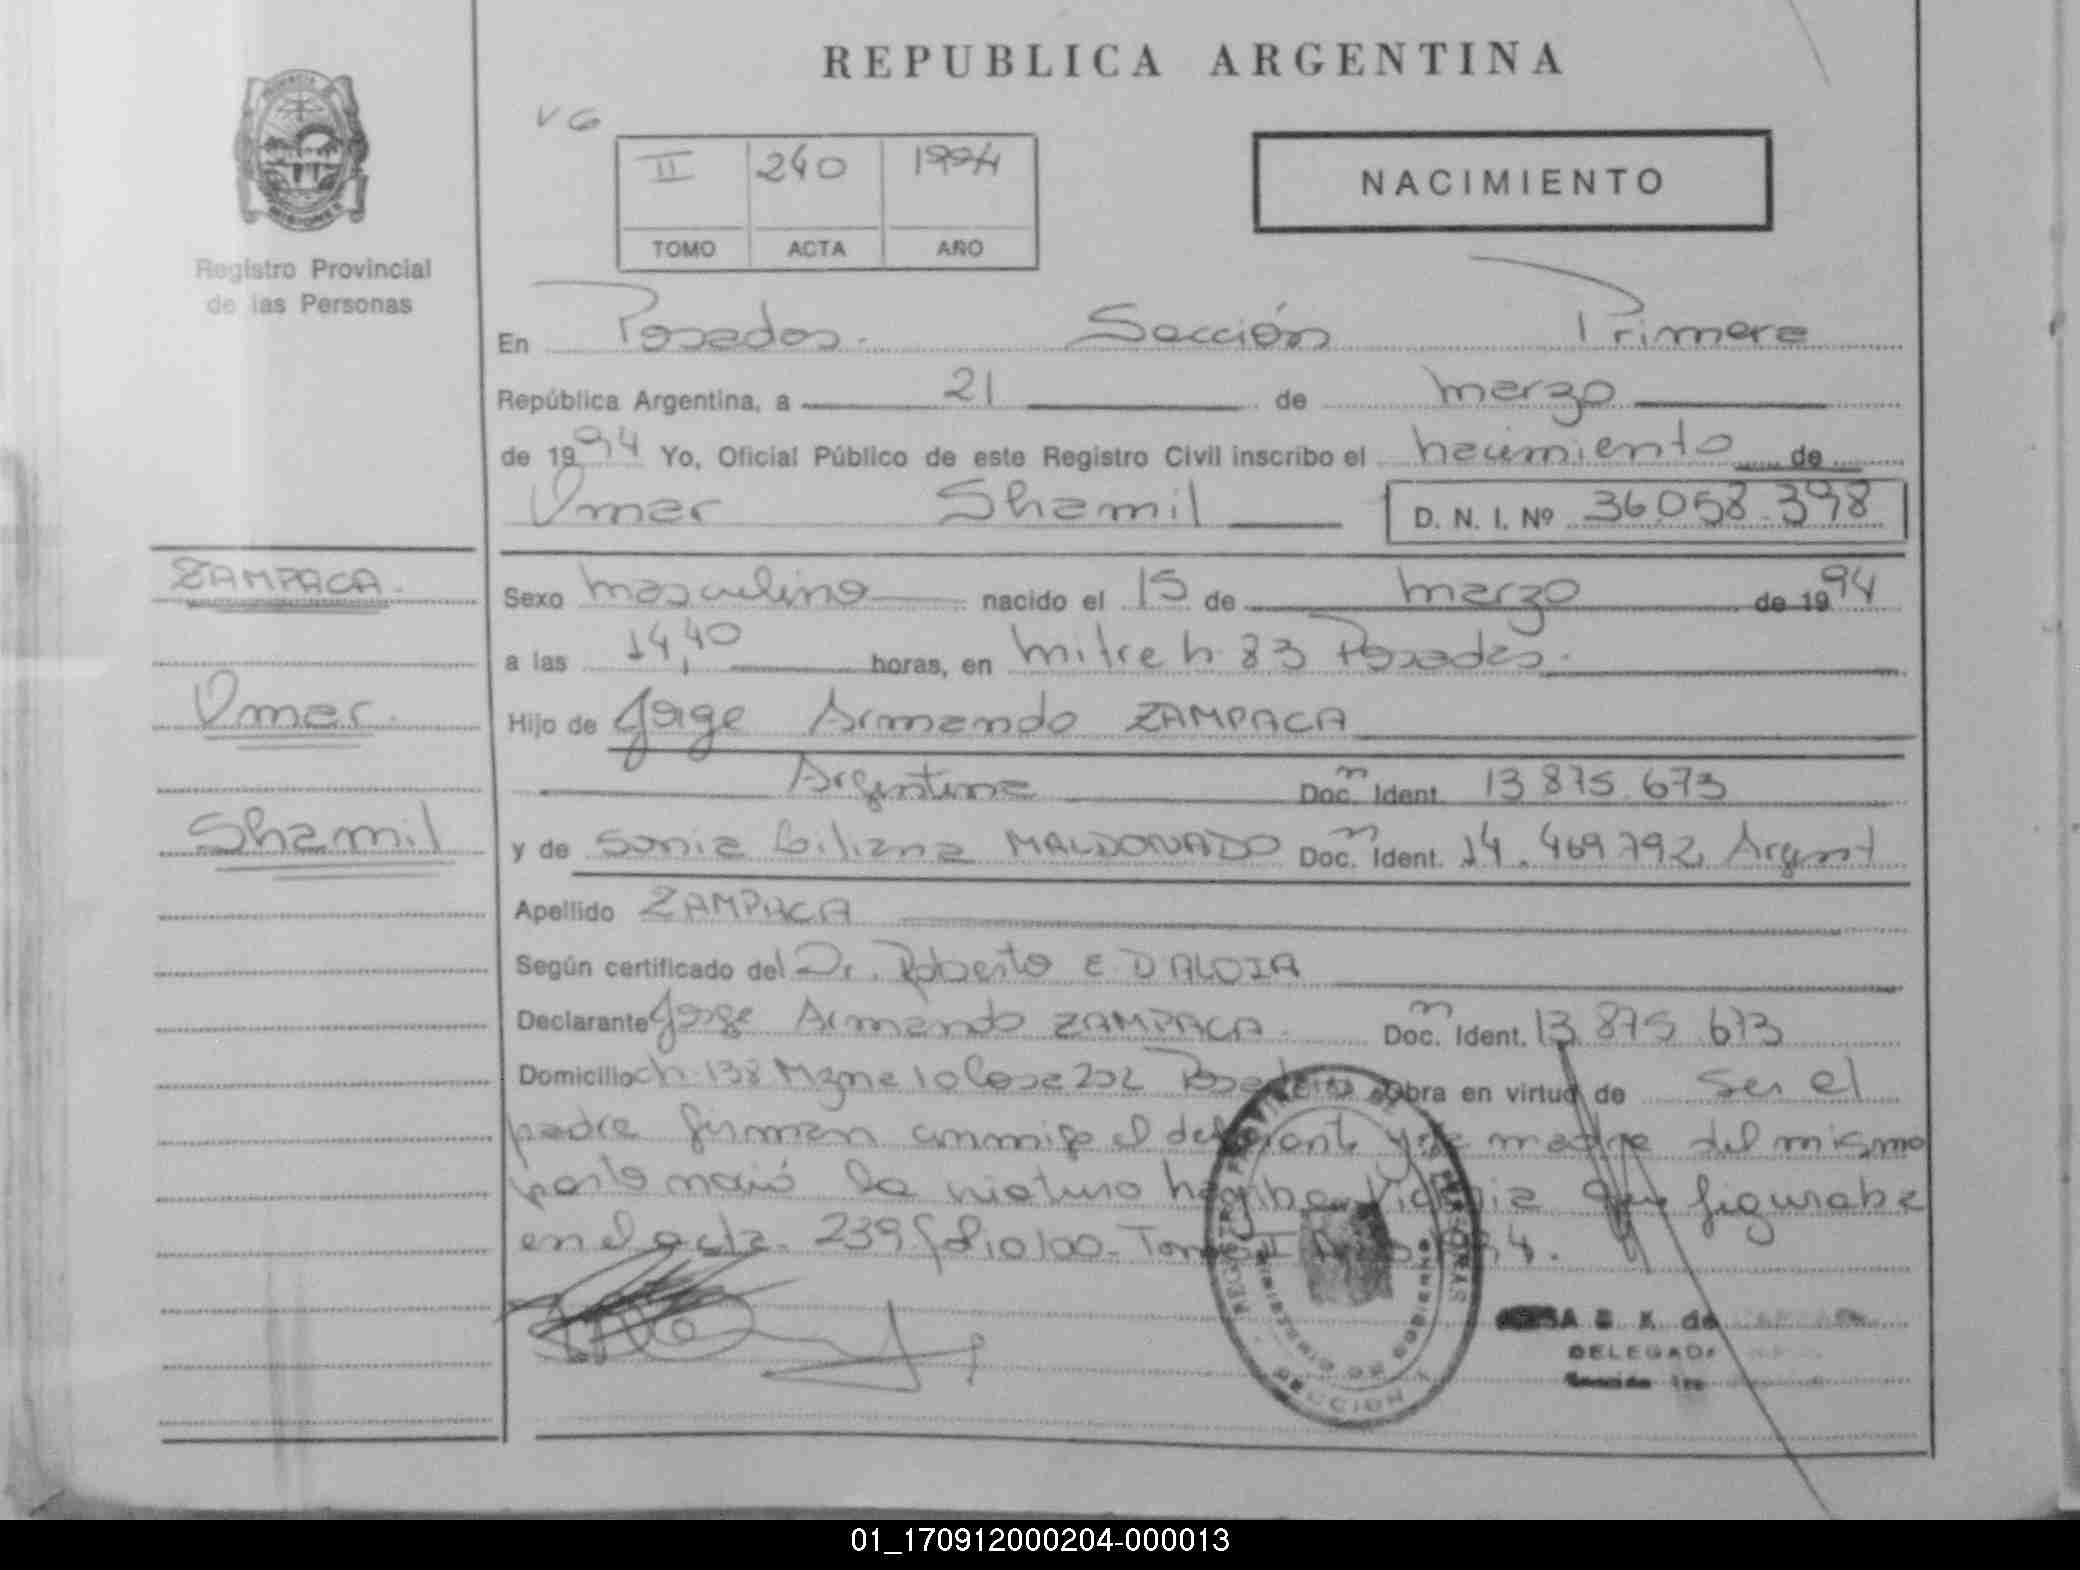 REPUBLICA ARGENTINA
VG
II 240 1994
TOMO ACTA AÑO
NACIMIENTO
Registro Provincial
de las Personas
En Posadas. Sección Primera
República Argentina, a 21 de marzo
de 1994 Yo, Oficial Público de este Registro Civil inscribo el nacimiento de
Omar Shamil D. N. I. Nº 36.058.398
ZAMPACA.
Omar.
Shamil
Sexo masculino nacido el 15 de marzo de 1994
a las 14,40 horas, en mitre n 83 Posadas.
Hijo de Jorge Armando ZAMPACA
Argentina Doc. n Ident. 13.875.673
y de Sonia Liliana MALDONADO Doc. n Ident. 14.469.792, Argent
Apellido ZAMPACA
Según certificado del Dr. Roberto E. D'ALOIA
Declarante Jorge Armando ZAMPACA. Doc. n Ident. 13.875.673
Domicilio ch 138 Mzna 10 Casa 202 Posadas Obra en virtud de Ser el
padre firman conmigo el y la madre del mismo
parto nació la que figuraba
en el acta. 239 folio 100- Tomo II
REGISTRO PROVINCIAL DE LAS PERSONAS
DELEGADA
Sección 1ra
01_170912000204-000013